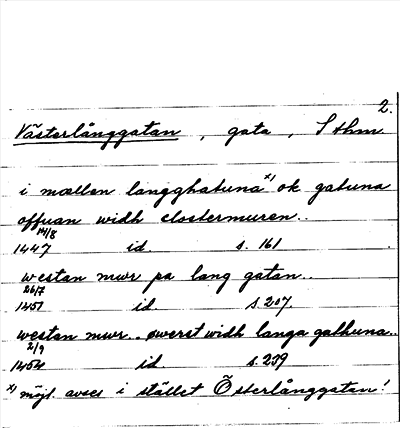 2.
Västerlånggatan, gata, Sthm
i mællan langghatuna x) ok gatuna
offuan widh clostermuren..
14/8
1447 id s. 161
westan mwr pa lang gatan..
26/7
1451 id. s. 207
westan mwr.. øwerst widh langa gathuna..
2/9
1454 id s. 239
x) möjl. avses i stället Österlånggatan!